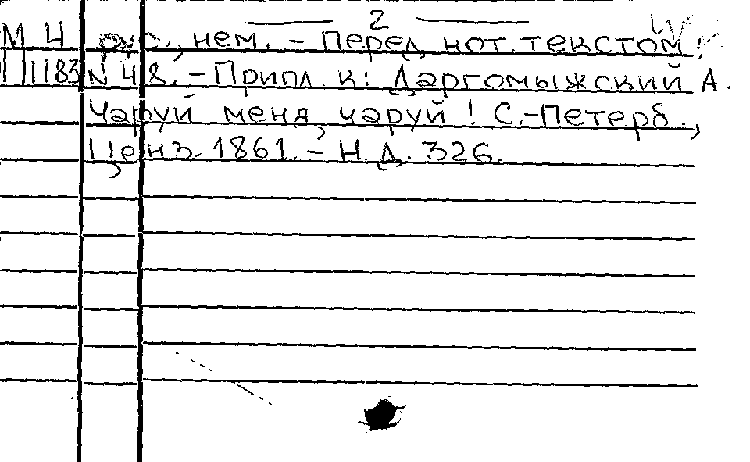 2
М Ч рус., нем. – Перед нот. текстом:
П1183 N 48. – Припл. к: Даргомыжский А.
Чаруй меня, чаруй! С.-Петерб.,
Ценз. 1861. – Н.Д. 326.